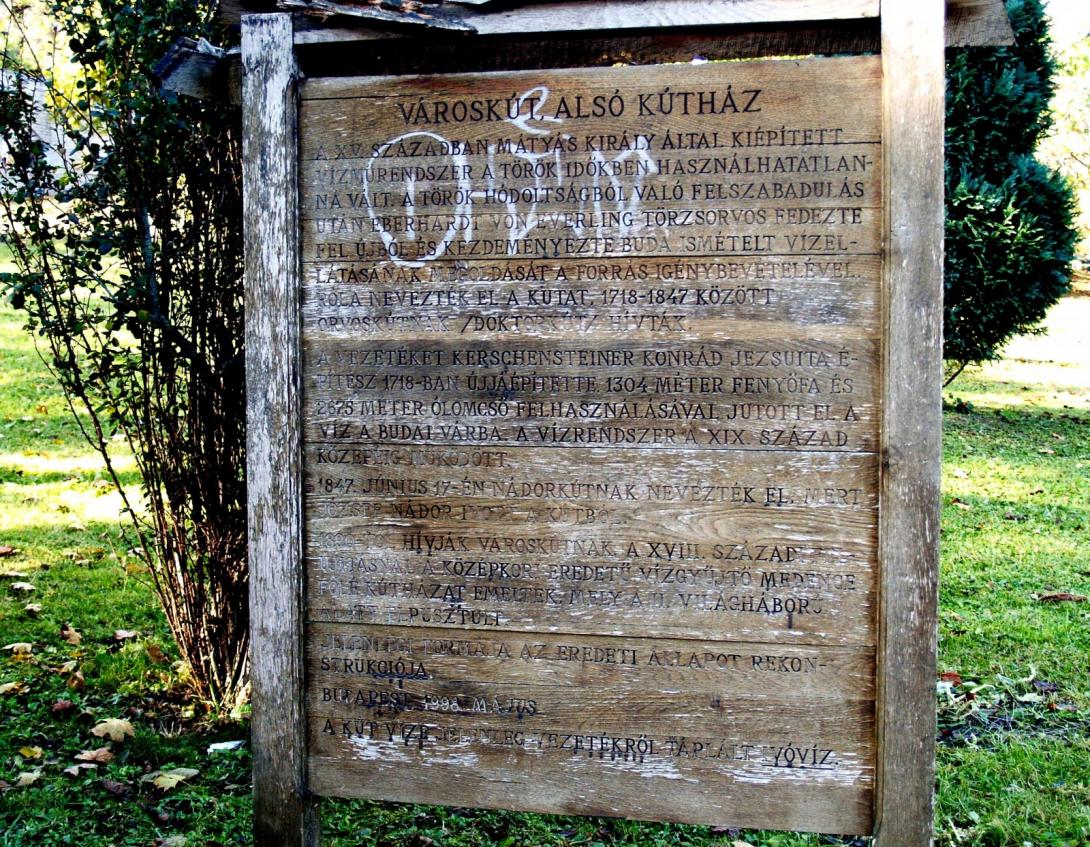 VÁROSKÚT, ALSÓ KÚTHÁZ
A XV. SZÁZADBAN MÁTYÁS KIRÁLY ÁLTAL KIÉPÍTETT
VÍZMŰRENDSZER A TÖRÖK IDŐKBEN HASZNÁLHATATLAN-
NÁ VÁLT. A TÖRÖK HÓDOLTSÁGBÓL VALÓ FELSZABADULÁS
UTÁN EBERHARDT VON EVERLING TÖRZSORVOS FEDEZTE
FEL ÚJBÓL ÉS KEZDEMÉNYEZTE BUDA ISMÉTELT VÍZEL-
LÁTÁSÁNAK MEGOLDÁSÁT A FORRÁS IGÉNYBEVETELÉVEL
RÓLA NEVEZTÉK EL A KUTAT, 1718-1847 KÖZÖTT
ORVOSKÚTNAK /DOKTORKÚT/ HÍVTÁK.
A VEZETÉKET KERSCHENSTEINER KONRÁD JEZSUITA É-
PÍTÉSZ 1718-BAN ÚJJÁÉPÍTETTE. 1304 MÉTER FENYŐFA ÉS
2675 MÉTER ÓLOMCSŐ FELHASZNÁLÁSÁVAL JUTOTT EL A
VÍZ A BUDAI VÁRBA. A VÍZRENDSZER A XIX. SZÁZAD
KÖZEPÉIG MŰKÖDÖTT.
1847. JÚNIUS 17-ÉN NÁDORKÚTNAK NEVEZTÉK EL, MERT
JÓZSEF NÁDOR IVOTT A KÚTBÓL.
HÍVJÁK VÁROSKÚTNAK. A XVIII. SZÁZAD
A KÖZÉPKORI EREDETŰ VÍZGYŰJTŐ MEDENCE
FÖLÉ KÚTHÁZAT EMELTEK, MELY A II. VILÁGHÁBORÚ
ALATT ELPUSZTULT.
JELENLEGI FORMÁJA AZ EREDETI ÁLLAPOT REKON-
STRUKCIÓJA.
BUDAPEST, 1998. MÁJUS
A KÚT VIZE JELENLEG VEZETÉKRŐL TÁPLÁLT IVÓVÍZ.